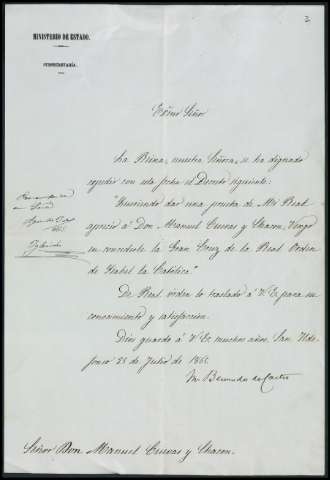 2
MINISTERIO DE ESTADO.
SUBSECRETARÍA.
Exmo Señor
La Reina, nuestra Señora, se ha dignado
expedir con esta fecha el Decreto siguiente:
"Queriendo dar una prueba de Mi Real
aprecio á Don Manuel Cuevas y Chacon, Vengo
en concederle la Gran Cruz de la Real Orden
de Isabel la Católica."
De Real orden lo traslado á V.E. para su
conocimiento y satisfaccion.
Dios guarde á V.E. muchos años. San Ilde-
fonso 25 de Julio de 1865.
M. Bermudez de Castro
Señor Don Manuel Cuevas y Chacon.